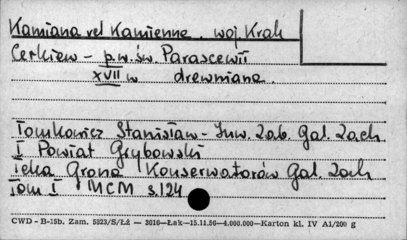 Kamiana vel Kamienne . woj Krak
Cerkiew - p.w. św. Parascewii
XVII w drewniana.
Tomkowicz Stanisław - Inw. Zab. Gal. Zach
I Powiat Grybowski
Teka Grona Konserwatorów Gal. Zach
Tom I MCM s.124
CWD - B-15b. Zam. 5323/S/Łż — 3016—Łak—15.11.56—4.000.000—Karton kl. IV A1/200 g